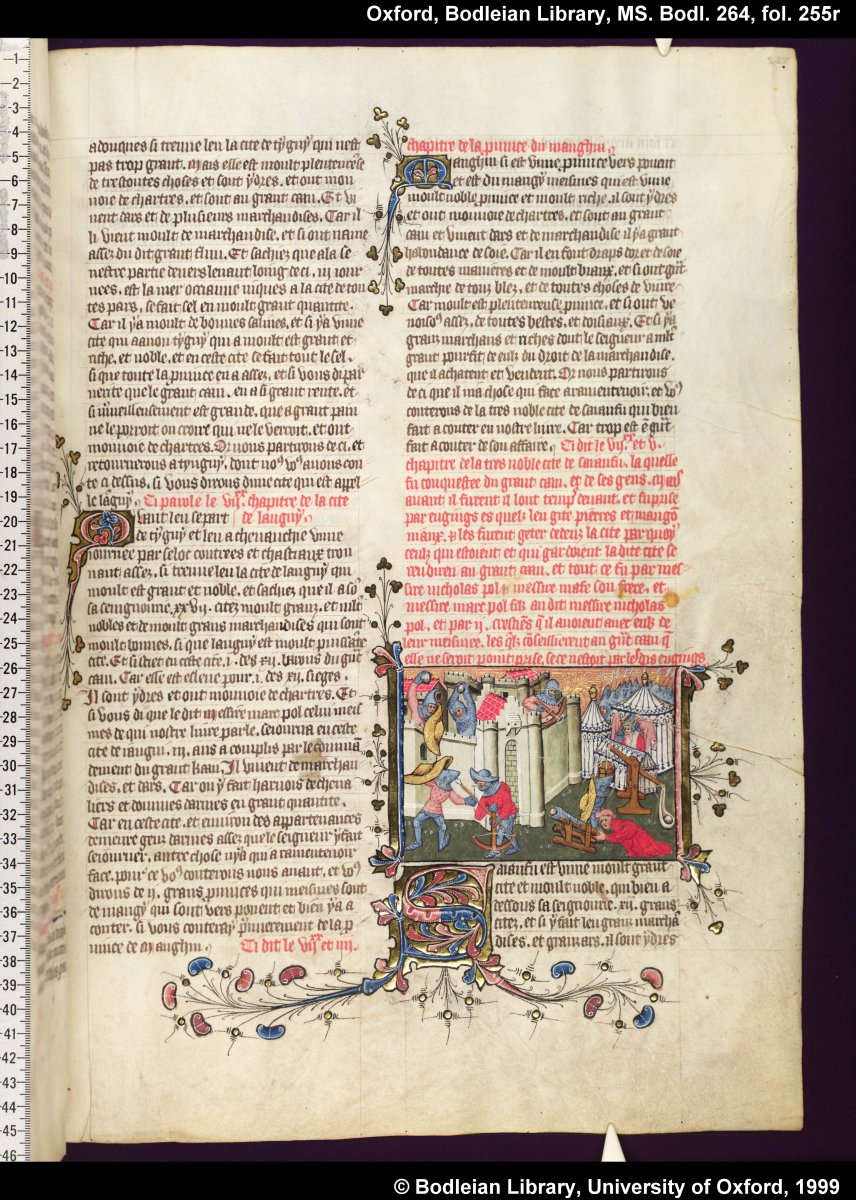 Oxford, Bodleian Library, MS. Bodl. 264, fol. 255r
adonques si treuue len la cite de tyguy qui nest
pas trop grant. Mais elle est moult plenteureuse
de trestoutes choses et sont ydres. et ont mon
noie de chartres. et sont au grant caan. Et vi
uent dars et de plusieurs marchandises. Car il
li vient moult de marchandise. et si ont naure
assez du dit grant flun. Et sachiez que a la se
nestre partie deuers leuant loing de ci . iii iour
nees. est la mer occianne iusques a la cite de tou
tes pars. se fait sel en moult grant quantite.
Car il ya moult de bonnes salines. et si ya vne
cite qui a a non tyguy qui a moult est grant et
riche. et noble. et en ceste cite se fait tout le sel.
si que toute la prouince en a assez. et si vous di par
uerite que le grant caan. en a si grant rente. et
si merueilleusement est grande. que a grant pain
ne le porroit on croire qui ne le verroit. et ont
monnoie de chartres. Or nous partirons de ci. et
retournerons a tynguy. dont nos vos auons con
te ci dessus. si vous dirons dune cite qui est appel
le languy. Ci parole le chapitre de la cite
Quant len se part de languy.
de tyguy et len a cheuauchie vne
iournee par seloc contrees et chastiaux trou
uant assez. si treuue len la cite de languy qui
moult est grant et noble. et sachiez que il a so
sa seignourie. xxvii. citez moult granz. et mlt
nobles et de moult grans marchandises qui sont
moult bonnes. si que languy est moult puissante
cite. Et si siet en ceste cite . i . des xii. barons du grant
caan. Car elle est esleue pour . i . des xii. sieges.
Il sont ydres et ont monnoie de chartres. Et
si vous di que le dit messire marc pol celui meis
mes de qui nostre liure parle. seiourna en ceste
cite de iangui . iii. ans a complis par le comman
dement du grant kaan. Il viuent de marchan
dises. et dars. Car on y fait harnois de cheua
liers et dommes darmes en grant quantite.
Car en ceste cite. et enuiron des appartenances
demeure genz darmes assez que le seigneur y fait
seiourner. autre chose nya qui a ramenteuoir
face. pour ce vos conterons nous auant. et vos
dirons de ii. grans prouinces qui meismes sont
de mangy qui sont vers ponent et bien y a a
conter. si vous conteray premierement de la p
uince de Manghin. Ci dit le et iiii.
chapitre de la prouince du manghin.
Manghin si est vne prouince vers ponent
et est du mangy meismes qui est vne
moult noble prouince et moult riche. il sont ydres
et ont monnoie de chartres. et sont au grant
caan et viuent dars et de marchandise il ya grant
habondance de soie. Car il en font draps dor et de soie
de toutes manieres et de moult biaux. et si ont grant
marchie de touz blez. et de toutes choses de viure
Car moult est plenteureuse prouince. et si ont ve
noisons assez. de toutes bestes. et doisiaux. Et si ya
granz marchans et riches dont le seigneur a mlt
grant pourfit de eulz du droit de la marchandise.
que il achatent et vendent. Or nous partirons
de ci que il ni a chose qui face a ramenteuoir. et vos
conterons de la tres noble cite de saianfu qui bien
fait a conter en nostre liure. Car trop est e grant
fait a conter de son affaire. Ci dit le et v.
chapitre de la tres noble cite de saianfu. la quelle
fu conquestee du grant caan. et de ses gens. Mais
auant il furent il lonc temps deuant. et fu prise
par engings es quelz len gite pierres et mangon
niaux. les furent geter dedenz la cite par quoy
ceulz qui estoient et qui gardoient la dite cite se
rendirent au grant caan. et tout ce fu par mes
sire nicholas pol et messire mafe son frere. et
messire marc pol filz au dit messire nicholas
pol. et par ii. crestiens q il auoient auec eulz de
leur meisnee. les qlx conseillierent au grant caan q
elle ne seroit point prise. se ce nestoit par les dis engings
Saianfu est vne moult grant
cite et moult noble. qui bien a
dessous sa seignourie. xii. grans
citez. et si y fait len granz marcha
dises. et granz ars. il sont ydres
© Bodleian Library, University of Oxford, 1999